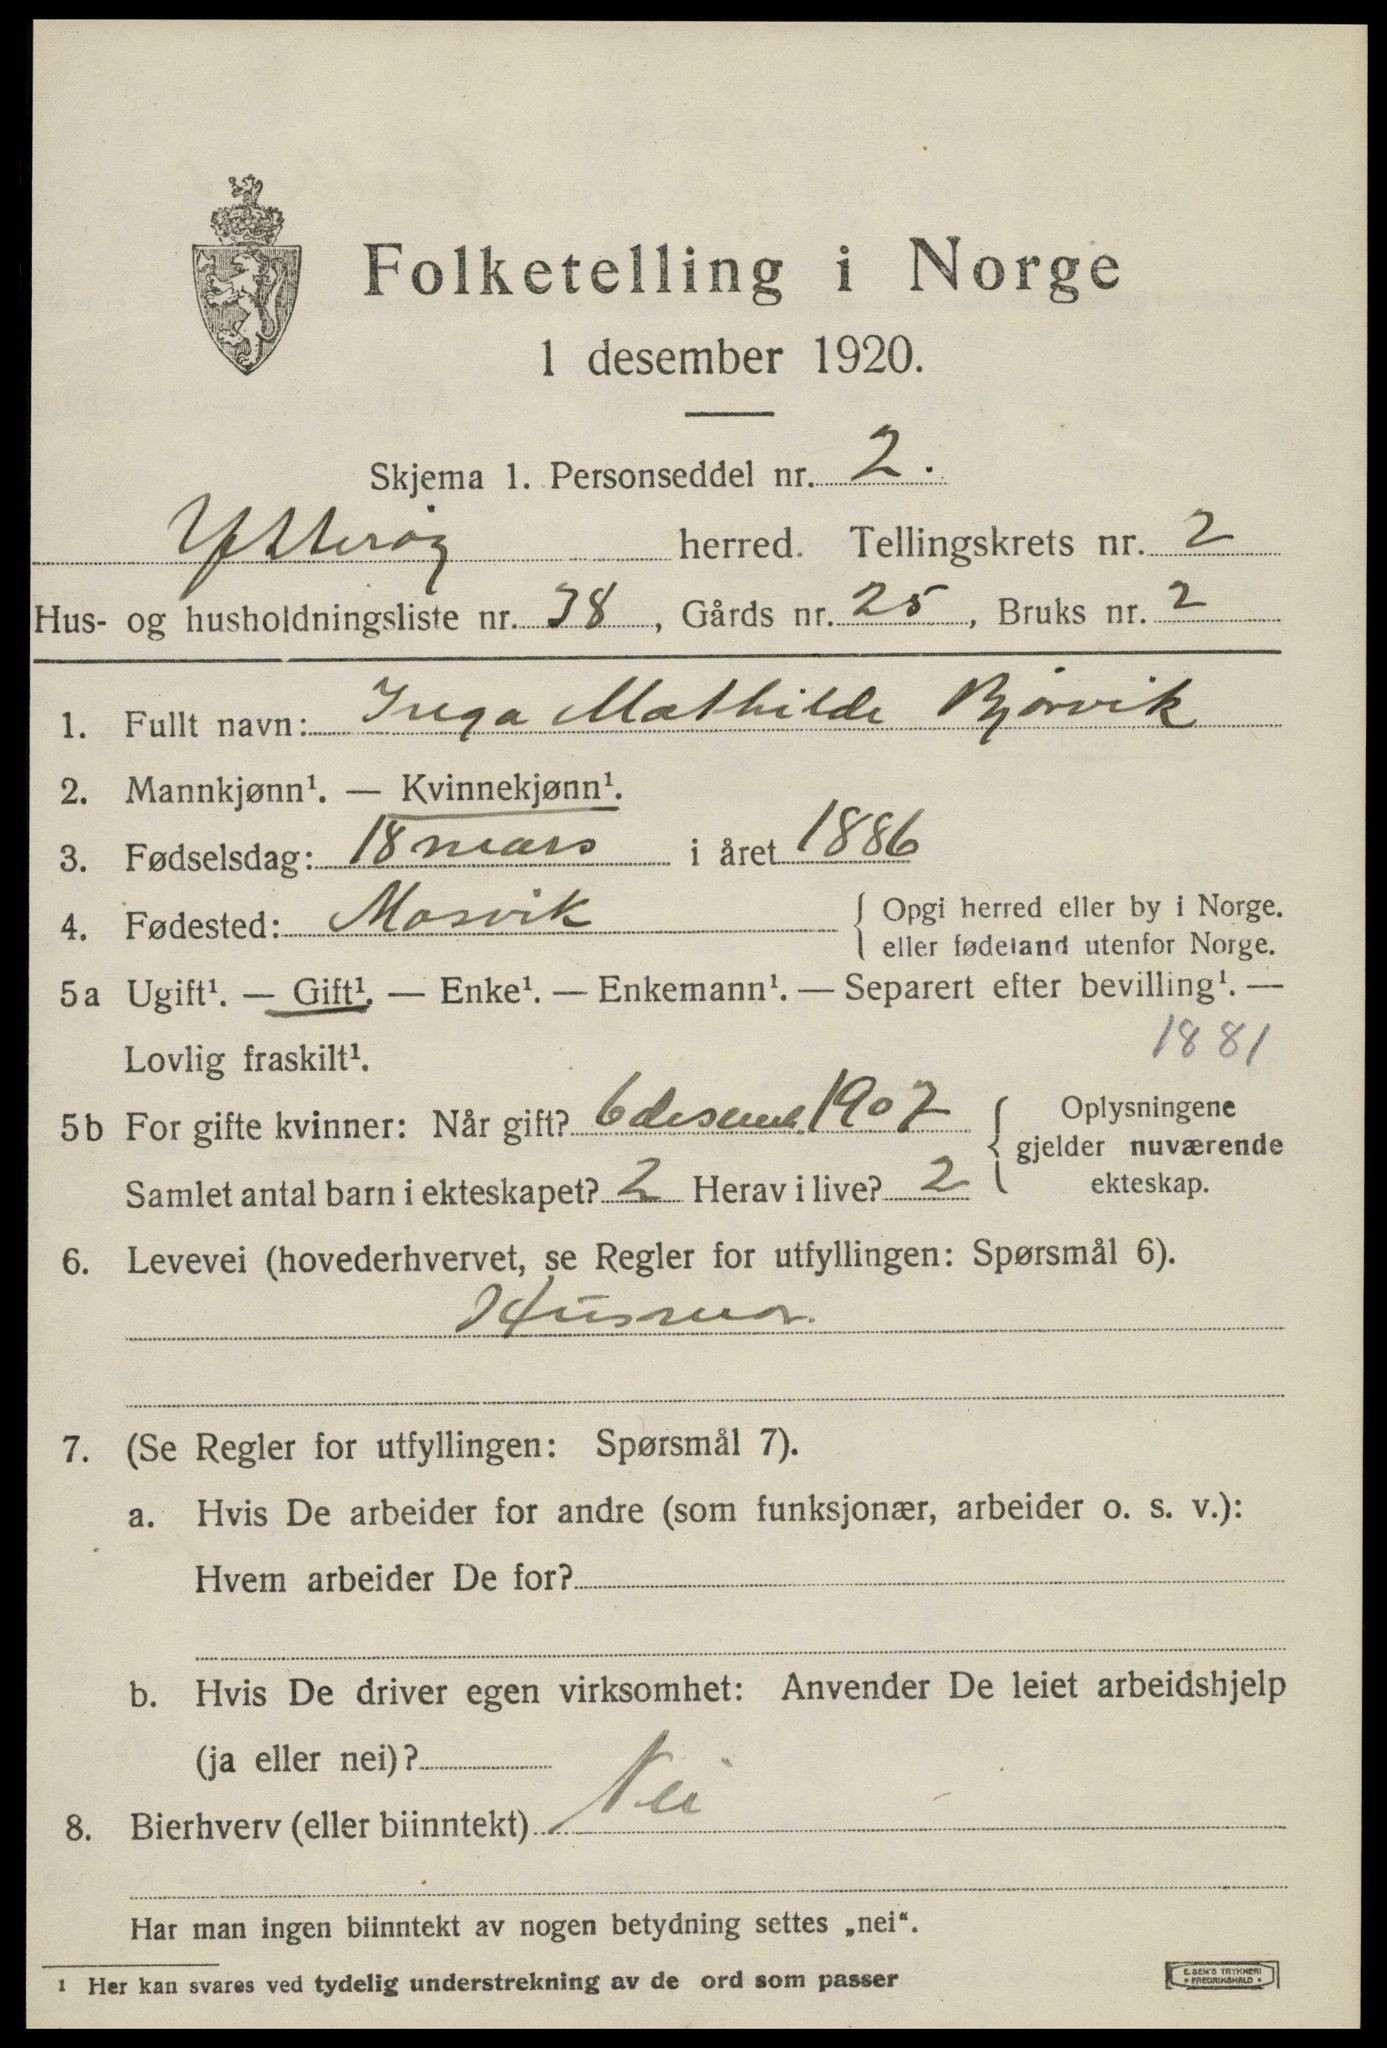 Folketelling i Norge
1 desember 1920.
Skjema 1. Personseddel nr. 2.
Ytterøy herred. Tellingskrets nr. 2
Hus- og husholdningsliste nr. 38, Gårds nr. 25, Bruks nr. 2
1. Fullt navn: Inga Mathilde Bjørvik
2. Mannkjønn¹. — Kvinnekjønn¹.
3. Fødselsdag: 18 mars i året 1886
4. Fødested: Mosvik { Opgi herred eller by i Norge.
eller fødeland utenfor Norge.
5a Ugift¹. — Gift¹. — Enke¹. — Enkemann¹. — Separert efter bevilling¹. —
Lovlig fraskilt¹.
1881
5b For gifte kvinner: Når gift? 6 desemb. 1907 { Oplysningene
gjelder nuværende
Samlet antal barn i ekteskapet? 2 Herav i live? 2 ekteskap.
6. Levevei (hovederhvervet, se Regler for utfyllingen: Spørsmål 6).
Husmor.
7. (Se Regler for utfyllingen: Spørsmål 7).
a. Hvis De arbeider for andre (som funksjonær, arbeider o. s. v.):
Hvem arbeider De for?
b. Hvis De driver egen virksomhet: Anvender De leiet arbeidshjelp
(ja eller nei)?
8. Bierhverv (eller biinntekt) Nei
Har man ingen biinntekt av nogen betydning settes „nei“.
¹ Her kan svares ved tydelig understrekning av de ord som passer
E. SEM'S TRYKKERI
• FREDRIKSHALD •